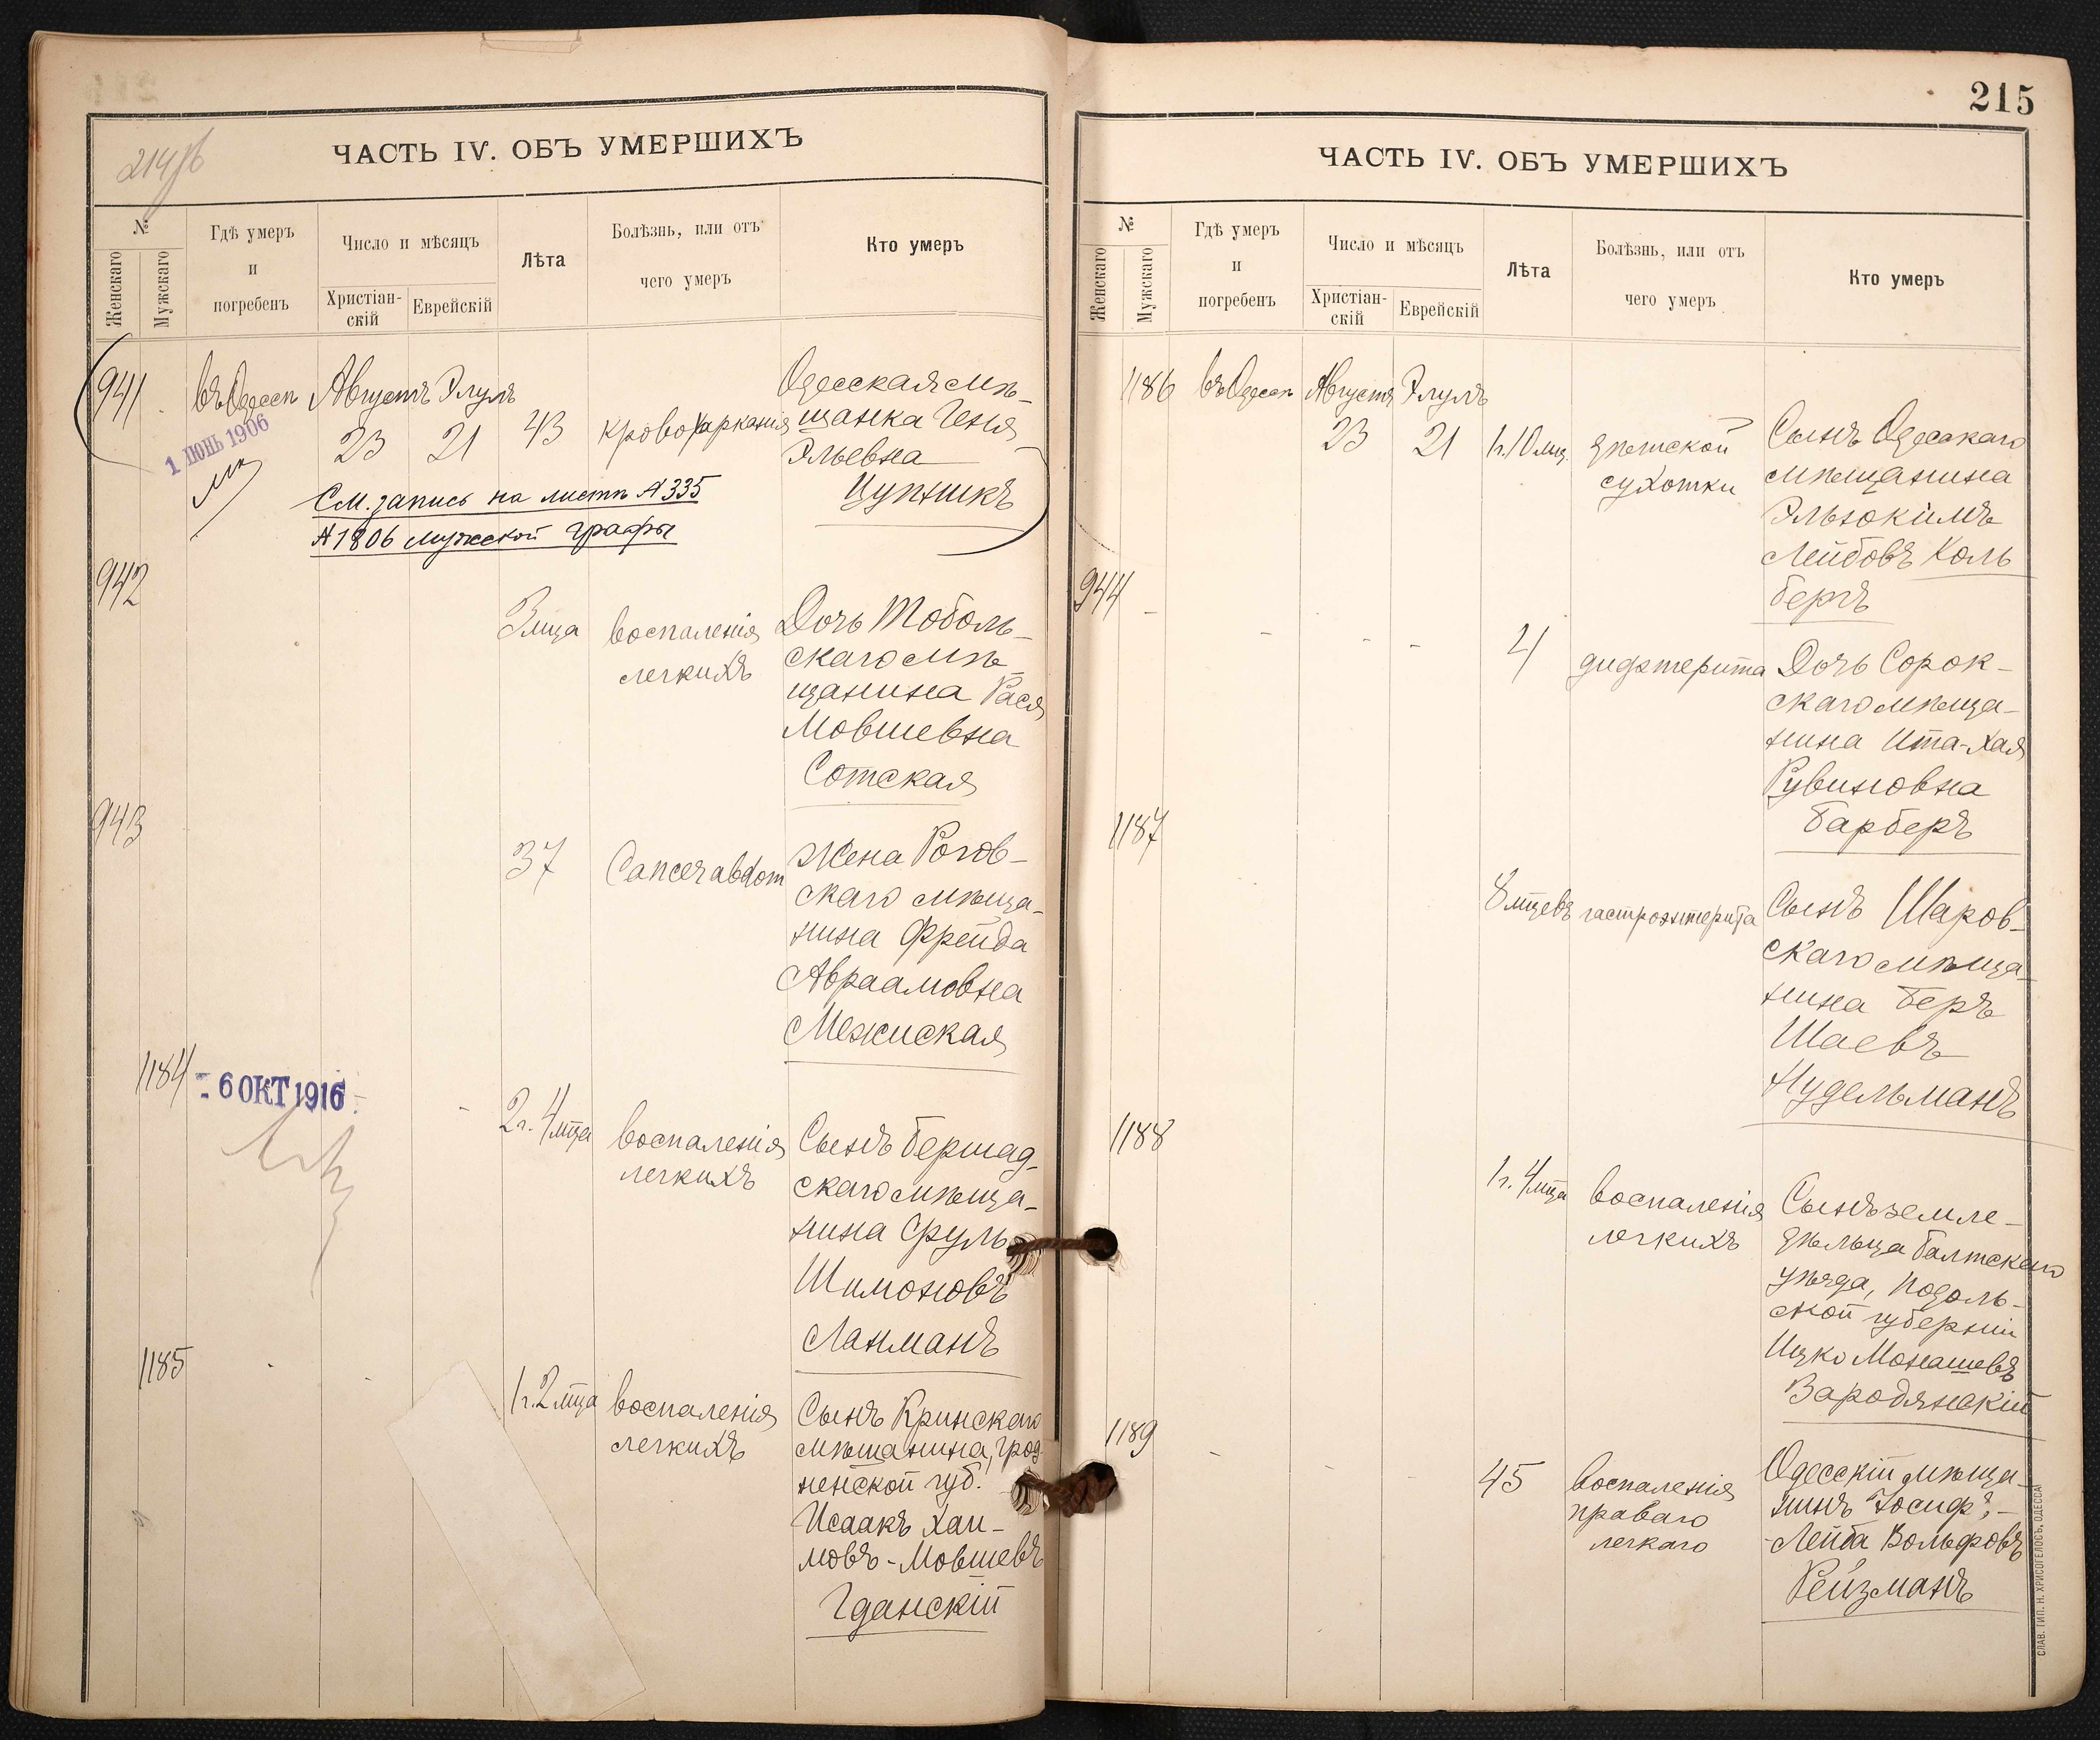 214об
ЧАСТЬ IV. ОБЪ УМЕРШИХЪ
№
Женскаго
Мужскаго
Гдѣ умеръ
и
погребенъ
Число и мѣсяцъ
Христіан-
скій
Еврейскій
Лѣта
Болѣзнь, или отъ
чего умеръ
Кто умеръ
941
въ Одессѣ
Августъ Элулъ
23 21 43 кровохарканія
Одесская мѣ-
щанка Геня
Эльевна
Цупникъ
1 ІЮНЬ 1906
См. запись на листѣ № 335
№ 1806 мужской графы
942
3 мца воспаленія
легкихъ
Дочь Тоболь-
скаго мѣ-
щанина Рася
Мовшевна
Сотская
943
37 Cancer abdom
Жена Рогов-
скаго мѣща-
нина Фрейда
Авраамовна
Межиская
1184
- 6 ОКТ 1916
2 г. 4 мца воспаленія
легкихъ
Сынъ Бершад-
скаго мѣща-
нина Сруль
Шимоновъ
Ланманъ
1185
1 г. 2 мца воспаленія
легкихъ
Сынъ Кринскаго
мѣщанина, Грод-
ненской губ.
Исаакъ Хаи-
мовъ-Мовшевъ
Гданскій
215
ЧАСТЬ IV. ОБЪ УМЕРШИХЪ
№
Женскаго
Мужскаго
Гдѣ умеръ
и
погребенъ
Число и мѣсяцъ
Христіан-
скій
Еврейскій
Лѣта
Болѣзнь, или отъ
чего умеръ
Кто умеръ
1186
въ Одессѣ
Августъ Элулъ
23 21 1 г. 10 мц. дѣтской
сухотки
Сынъ Одесскаго
мѣщанина
Эльюкимъ
Лейбовъ Коль
бергъ
944
4 дифтерита
Дочь Сорок-
скаго мѣща-
нина Ита-Хая
Рувиновна
Барберъ
1187
8 мцевъ гастроэнтерита
Сынъ Шаров-
скаго мѣща-
нина Беръ
Шаевъ
Нудельманъ
1188
1 г. 4 мца воспаленія
легкихъ
Сынъ земле-
дѣльца Балтскаго
уѣзда, Подоль-
ской губерніи
Ицко Монашевъ
Зародянскій
1189
45 воспаленія
праваго
легкаго
Одесскій мѣща-
нинъ Іосифъ-
-Лейба Вольфовъ
Рейзманъ
СЛАВ. ТИП. Н. ХРИСОГЕЛОСЪ, ОДЕССА